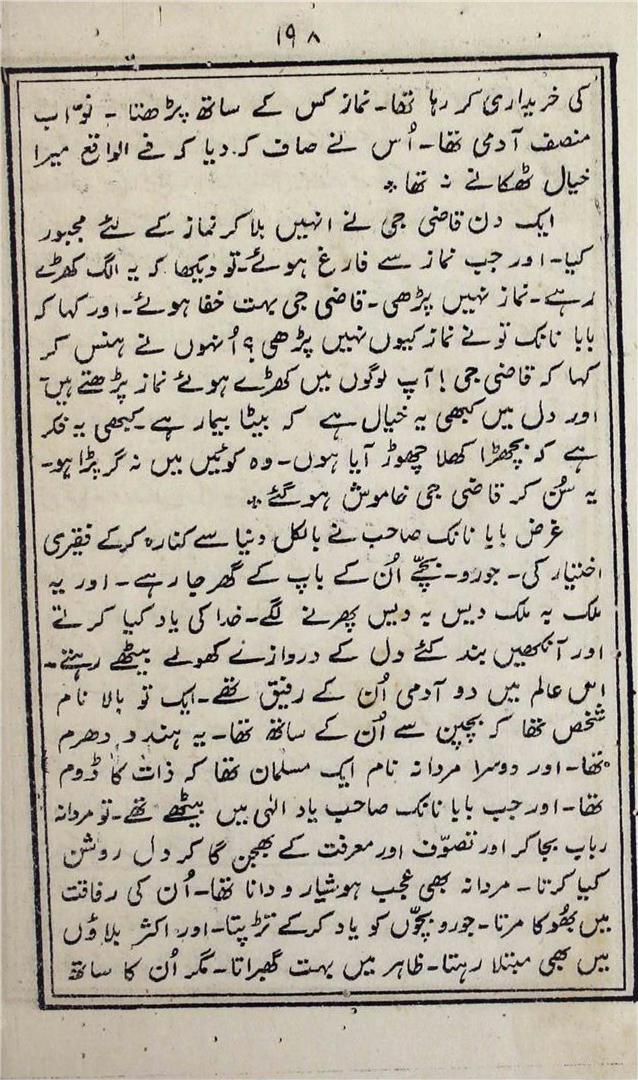 ۱۹۸
کی خریداری کر رہا تھا۔ نماز کس کے ساتھ پڑھتا ۔ نوّاب
منصف آدمی تھا۔ اُس نے صاف کہ دیا کہ فے الواقع میرا
خیال ٹھکانے نہ تھا ٭
ایک دن قاضی جی نے انہیں بلا کر نماز کے لئے مجبور
کیا۔ اور جب نماز سے فارغ ہوئے۔ تو دیکھا کہ یہ الگ کھڑے
رہے۔ نماز نہیں پڑھی۔ قاضی جی بہت خفا ہوئے۔ اور کہا کہ
بابا نانک تو نے نماز کیوں نہیں پڑھی؟ اُنہوں نے ہنس کر
کہا کہ قاضی جی! آپ لوگوں میں کھڑے ہوئے نماز پڑھتے ہیں۔
اور دل میں کبھی یہ خیال ہے کہ بیٹا بیمار ہے۔ کبھی یہ فکر
ہے کہ بچھڑا کھلا چھوڑ آیا ہوں۔ وہ کوئیں میں نہ گر پڑا ہو۔
یہ سُن کر قاضی جی خاموش ہو گئے ٭
غرض بابا نانک صاحب نے بالکل دنیا سے کنارہ کرکے فقیری
اختیار کی۔ جورو۔ بچّے اُن کے باپ کے گھر جا رہے۔ اور یہ
ملک بہ ملک دیس بہ دیس پھرنے لگے۔ خدا کی یاد کیا کرتے
اور آنکھیں بند کئے دل کے دروازے کھولے بیٹھے رہتے۔
اس عالم میں دو آدمی اُن کے رفیق تھے۔ ایک تو بالا نام
شخص تھا کہ بچپن سے اُن کے ساتھ تھا۔ یہ ہندو دھرم
تھا۔ اور دوسرا مردانہ نام ایک مسلمان تھا کہ ذات کا ڈوم
تھا۔ اور جب بابا نانک صاحب یاد الٰہی میں بیٹھے تھے۔ تو مردانہ
رباب بجا کر اور تصوّف اور معرفت کے بھجن گا کر دل روشن
کیا کرتا۔ مردانہ بھی عجب ہوشیار و دانا تھا۔ اُن کی رفاقت
میں بھُوکا مرتا۔ جورو بچّوں کو یاد کرکے تڑپتا۔ اور اکثر بلاؤں
میں بھی مبتلا رہتا۔ ظاہر میں بہت گھبراتا۔ مگر اُن کا ساتھ